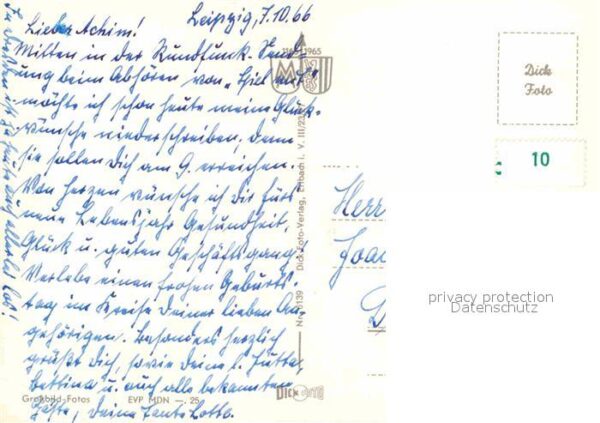 Leipzig, 7.10.66
Lieber Achim!
Mitten in der Rundfunk-Send-
ung beim Abhören von "Spiel mit"
möchte ich schon heute meine Glück-
wünsche niederschreiben, denn
sie sollen Dich am 9. erreichen.
Von Herzen wünsche ich Dir fürs
neue Lebensjahr Gesundheit,
Glück u. guten Geschäftsgang!
Verlebe einen frohen Geburts-
tag im Kreise Deiner lieben An-
gehörigen. Besonders herzlich
grüßt Dich, sowie Deine l. Jutta,
Bettina u. auch alle bekannten
Gäste, Deine Tante Lotte.
In Dresden ist ja heute auch allerlei los!
1165 1965
Dick-Foto-Verlag, Erlbach i. V. III/23
Nr. 139
Großbild-Fotos
EVP MDN —.25
DICK FOTO
Dick
Foto
10
Herr
Joa
D
privacy protection
Datenschutz